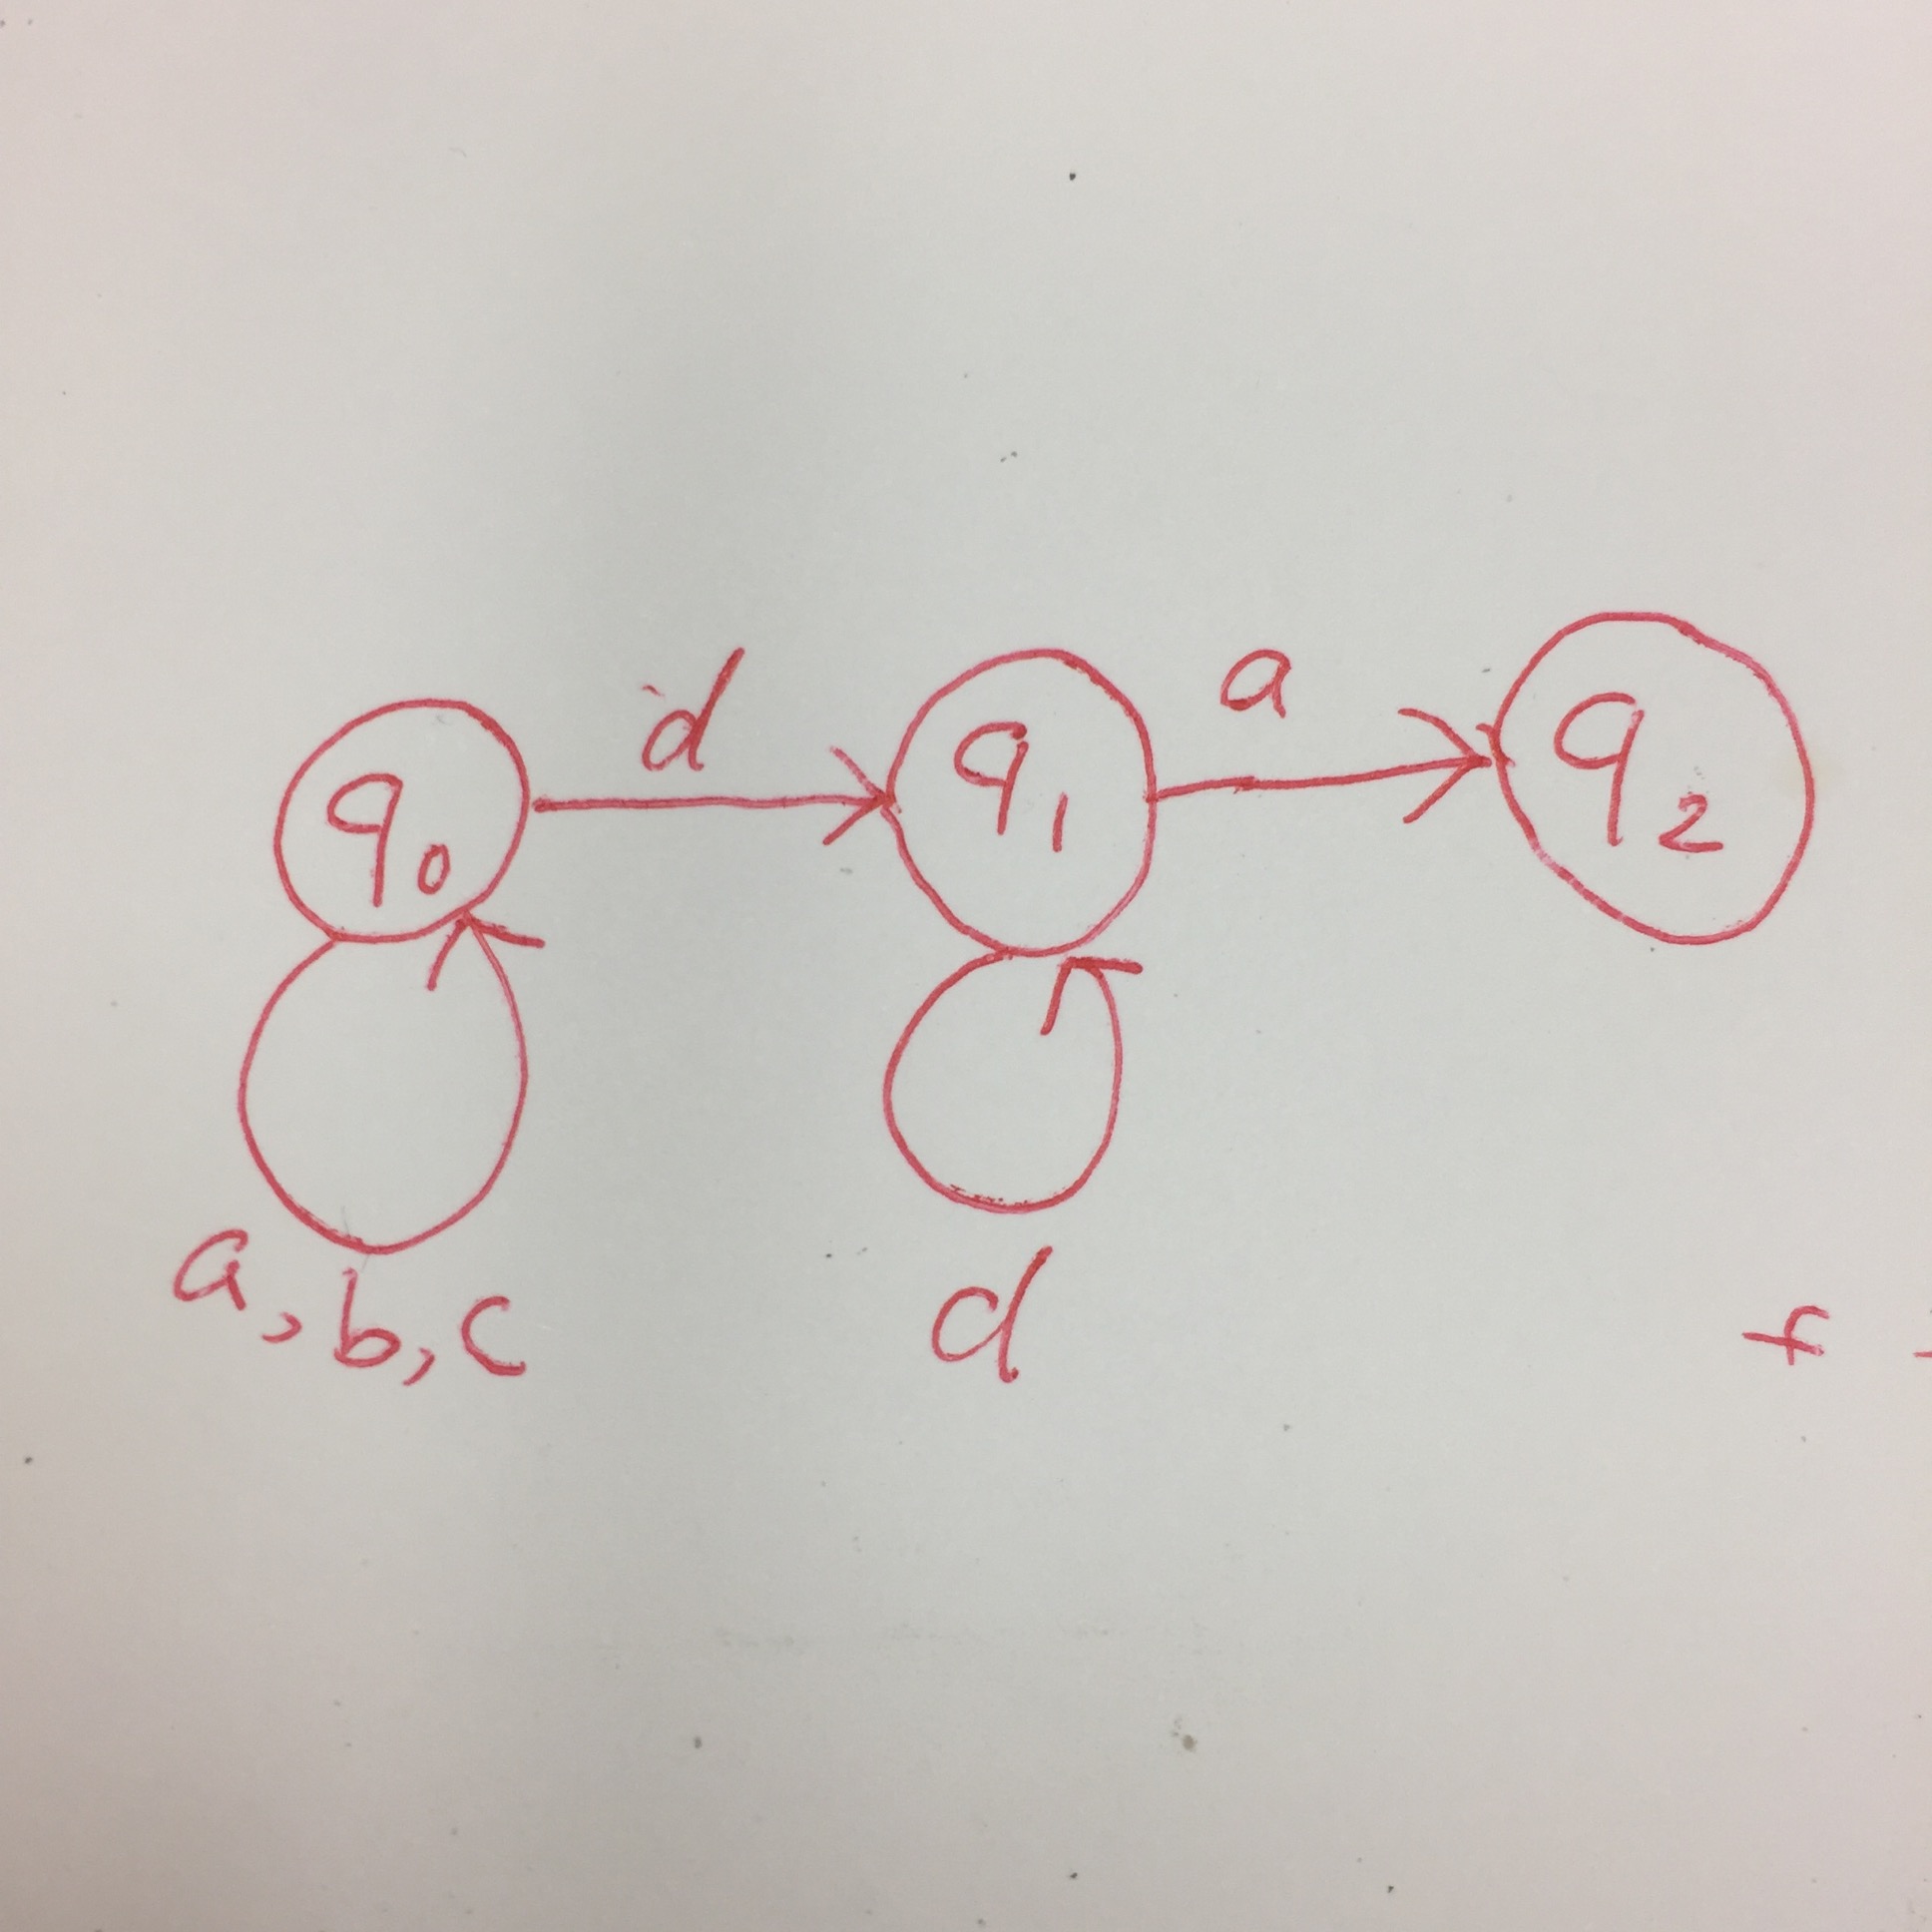 d a
q0 q1 q2
a, b, c d
f